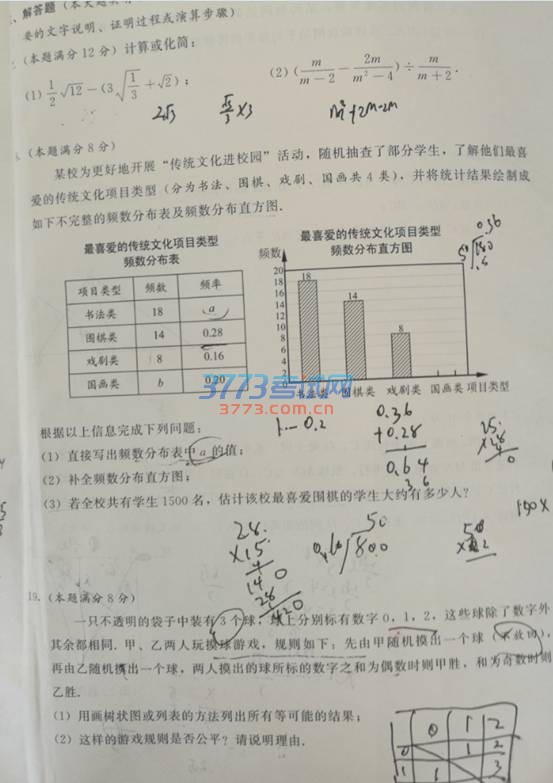 解答题
要的文字说明、证明过程或演算步骤)
(本题满分12分)计算或化简:
(1) 1/2 √12 -(3√(1/3)+√2);
(2)(m/(m-2) - 2m/(m²-4))÷ m/(m+2).
2√3
√3/3 ×3
m²+2m-2m
(本题满分8分)
某校为更好地开展“传统文化进校园”活动,随机抽查了部分学生,了解他们最喜
爱的传统文化项目类型(分为书法、围棋、戏剧、国画共4类),并将统计结果绘制成
如下不完整的频数分布表及频数分布直方图.
最喜爱的传统文化项目类型
频数分布表
项目类型 频数 频率
书法类 18 a
围棋类 14 0.28
戏剧类 8 0.16
国画类 b 0.20
最喜爱的传统文化项目类型
频数分布直方图
频数
20
18
16
14
12
10
8
6
4
2
0
18
14
8
书法类 围棋类 戏剧类 国画类 项目类型
0.36
3773考试网
3773.com.cn
根据以上信息完成下列问题:
(1)直接写出频数分布表中a的值;
(2)补全频数分布直方图;
(3)若全校共有学生1500名,估计该校最喜爱围棋的学生大约有多少人?
1-0.2
0.36
+0.28
0.64
36
28
×15
140
28
420
50
800
150×
19.(本题满分8分)
一只不透明的袋子中装有3个球,球上分别标有数字0,1,2,这些球除了数字外
其余都相同.甲、乙两人玩摸球游戏,规则如下:先由甲随机摸出一个球(不放回),
再由乙随机摸出一个球,两人摸出的球所标的数字之和为偶数时则甲胜,和为奇数时则
乙胜.
(1)用画树状图或列表的方法列出所有等可能的结果;
(2)这样的游戏规则是否公平?请说明理由.
0 1 2
0 1 2
1 1 3